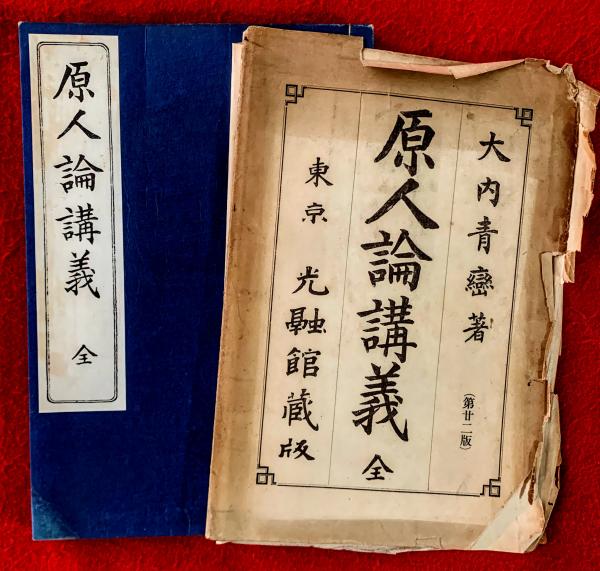 原人論講義 全
大内青巒著 (第廿二版)
原人論講義 全
東京 光融館蔵版